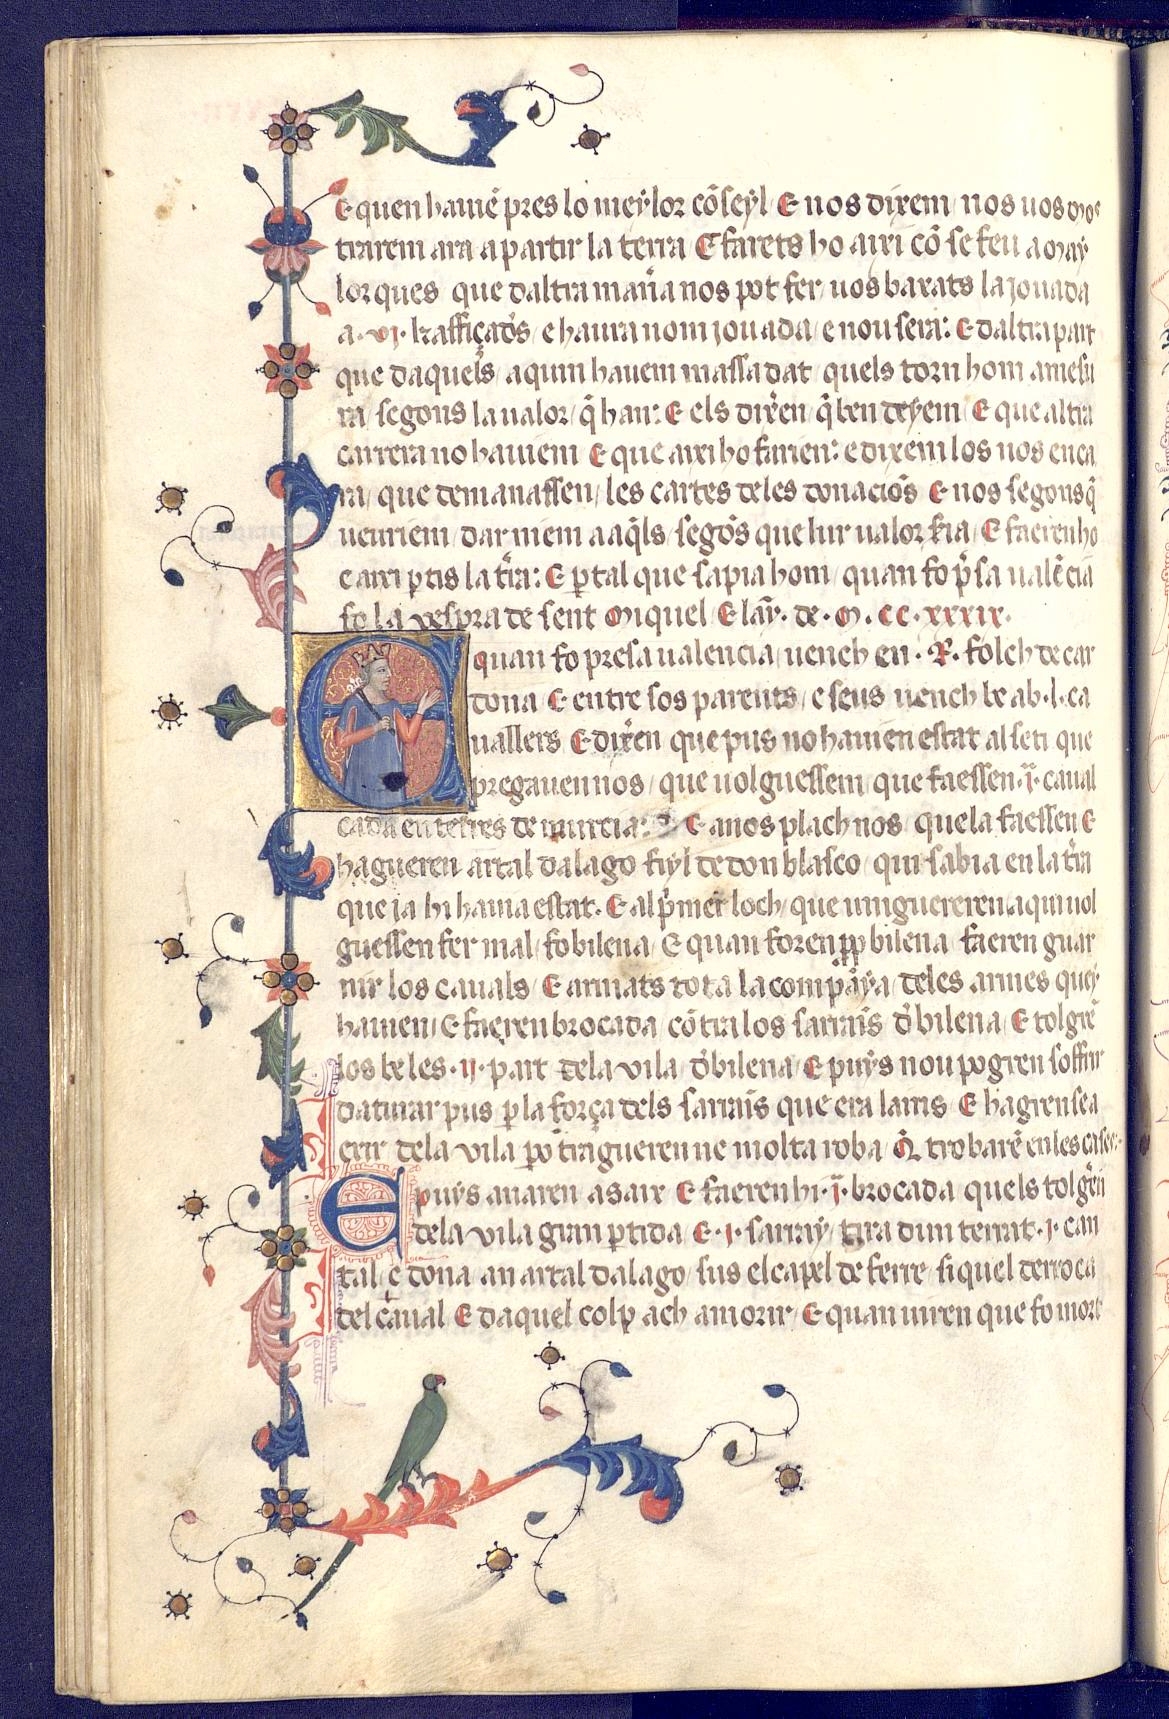 E quen hauiē pres lo meylor cōseyl E nos dixem nos uos mos
trarem ara a partir la terra E farets ho axi cō se feu a may
lorques que daltra maña nos pot fer uos baxats la jouada
a .vi. kafficades e haura nom jouada e nou sera: E daltra part
que daquels a quin hauem massa dat quels torn hom a mesu
ra segons la ualor q̄ han: E els dixēn q̄ ben deyem E que altra
carrera no hauiem E que axi ho farien: e dixem los nos enca
ra que demanassen les cartes deles donacions E nos segons q̄
ueuriem dar niem a aq̄ls segōs que lur ualor sia E faeren ho
e axi ptis la tr̄a: E ptal que sapia hom quan fo p̄sa ualēcia
fo la vespra de sent Miquel E lay de .M. CC. xxxix.
E quan fo presa ualencia uench en .R. folch de car
dona E entre sos parents e seus uench be ab .l. ca
uallers E dixēn que pus no hauien estat al seti que
pregauen nos que uolguessem que faessen .ī. caual
cada en terres de murcia: E a nos plach nos que la faessen E
hagueren artal dalago fiyl de don blasco qui sabia en la tr̄a
que ja hi hauia estat. E al p̄mer loch que uingueren en aqui uol
guessen fer mal fo bilena E quan foren ꝓp bilena faeren guar
nir los cauals E armats tota la compāya deles armes quey
hauien E faeren brocada cōtra los sarrais d̄ bilena E tolgrē
los be les .ii. part dela vila d̄ bilena E puys nou pogren soffrir
daturar pus p la força dels sarrais que era laīns E hagren sea
exir dela vila pō tragueren ne molta roba Q̄ trobarē en les cases:
E puys anaren a saix E faeren hi .ī. brocada quels tolgrēn
dela vila gran ptida E .i. sarray tira dun terrat .i. can
tal e dona an artal dalago sus el capel de ferre si quel derroca
del caual E daquel colp ach a morir E quan uiren que fo mort